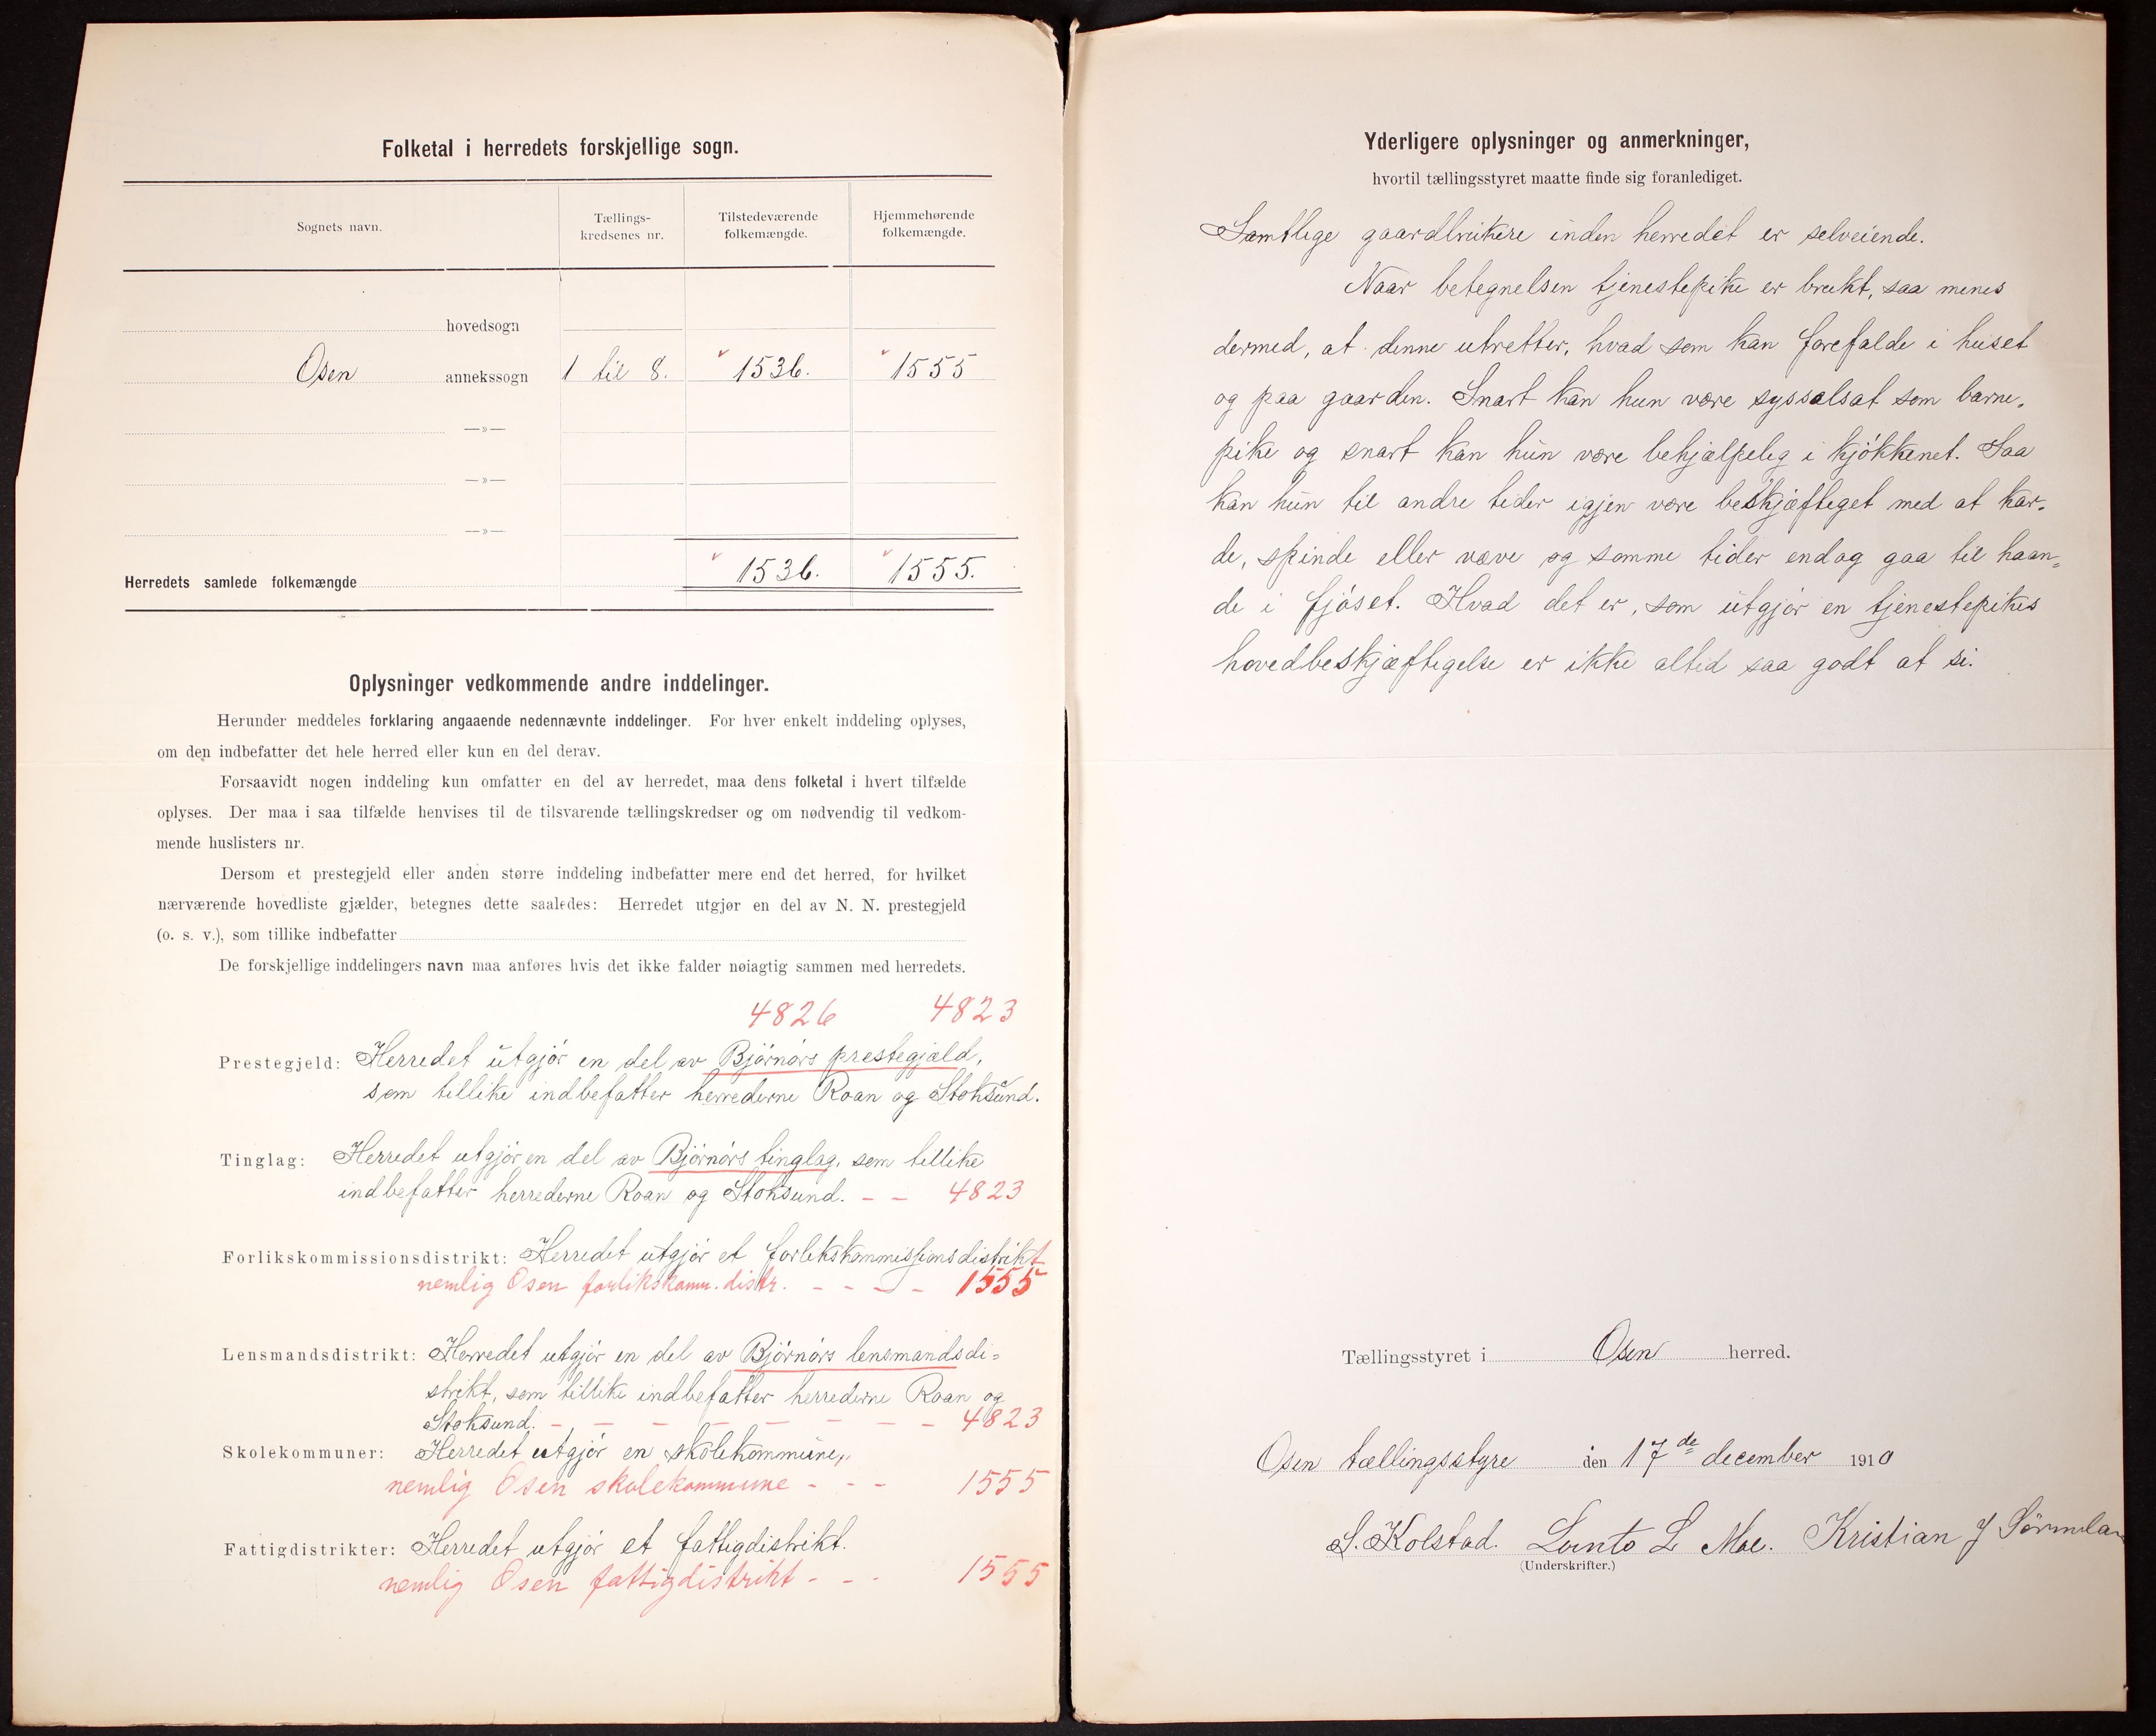 Folketal i herredets forskjellige sogn.
Sognets navn.
Tællings-
kredsenes nr.
Tilstedeværende
folkemængde.
Hjemmehørende
folkemængde.
hovedsogn
Osen annekssogn 1 til 8. 1536. 1555
—»—
—»—
—»—
Herredets samlede folkemængde 1536. 1555.
Oplysninger vedkommende andre inddelinger.
Herunder meddeles forklaring angaaende nedennævnte inddelinger. For hver enkelt inddeling oplyses,
om den indbefatter det hele herred eller kun en del derav.
Forsaavidt nogen inddeling kun omfatter en del av herredet, maa dens folketal i hvert tilfælde
oplyses. Der maa i saa tilfælde henvises til de tilsvarende tællingskredser og om nødvendig til vedkom-
mende huslisters nr.
Dersom et prestegjeld eller anden større inddeling indbefatter mere end det herred, for hvilket
nærværende hovedliste gjælder, betegnes dette saaledes: Herredet utgjør en del av N. N. prestegjeld
(o. s. v.), som tillike indbefatter
De forskjellige inddelingers navn maa anføres hvis det ikke falder nøiagtig sammen med herredets.
4826 4823
Prestegjeld: Herredet utgjör en del av Björnörs prestegjæld,
som tillike indbefatter herrederne Roan og Stoksund.
Tinglag: Herredet utgjör en del av Björnörs tinglag, som tillike
indbefatter herrederne Roan og Stoksund. – – 4823
Forlikskommissionsdistrikt: Herredet utgjör et forlikskommissionsdistrikt
nemlig Osen forlikskomm. distr. – – – – 1555
Lensmandsdistrikt: Herredet utgjör en del av Björnörs lensmandsdi=
strikt, som tillike indbefatter herrederne Roan og
Stoksund. – – – – – – – – 4823
Skolekommuner: Herredet utgjör en skolekommune,
nemlig Osen skolekommune – – – 1555
Fattigdistrikter: Herredet utgjör et fattigdistrikt.
nemlig Osen fattigdistrikt – – – 1555
Yderligere oplysninger og anmerkninger,
hvortil tællingsstyret maatte finde sig foranlediget.
Samtlige gaardbrukere inden herredet er selveiende.
Naar betegnelsen tjenestepike er brukt, saa menes
dermed, at denne utretter, hvad som kan forefalde i huset
og paa gaarden. Snart kan hun være syssalsat som barne-
pike og snart kan hun være behjælpelig i kjökkenet. Saa
kan hun til andre tider igjen være beskjæftiget med at kar-
de, spinde eller væve og somme tider endog gaa til haan=
de i fjöset. Hvad det er, som utgjör en tjenestepikes
hovedbeskjæftigelse er ikke altid saa godt at si.
Tællingsstyret i Osen herred.
Osen tællingsstyre den 17de december 1910
S. Kolstad. L Moe. Kristian J
(Underskrifter.)